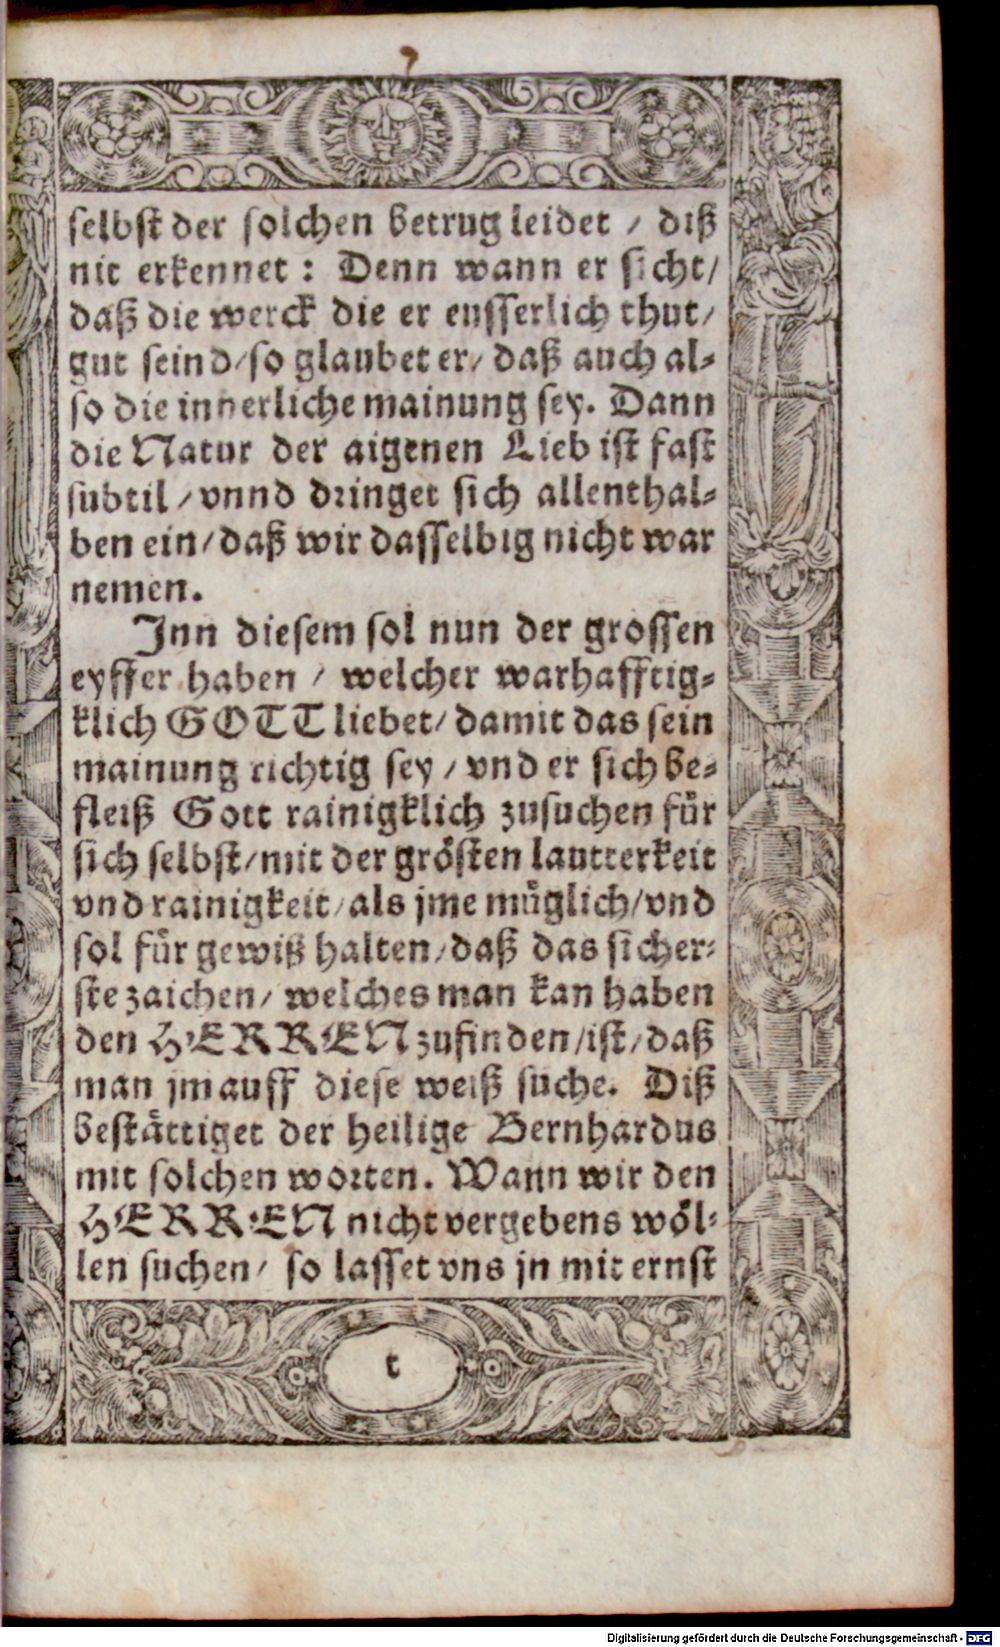 7
selbst der solchen betrug leidet / diß
nit erkennet : Denn wann er sicht/
daß die werck die er eusserlich thut/
gut seind/so glaubet er/ daß auch al-
so die innerliche mainung sey. Dann
die Natur der aigenen Lieb ist fast
subtil / vnnd dringet sich allenthal-
ben ein/daß wir dasselbig nicht war
nemen.
Inn diesem sol nun der grossen
eyffer haben / welcher warhafftig-
klich GOTT liebet/ damit das sein
mainung richtig sey / vnd er sich be-
fleiß Gott rainigklich zusuchen für
sich selbst/mit der grösten lautterkeit
vnd rainigkeit/als jme müglich/vnd
sol für gewiß halten/daß das sicher-
ste zaichen/ welches man kan haben
den HERREN zufinden/ist/daß
man jm auff diese weiß suche. Diß
bestättiget der heilige Bernhardus
mit solchen worten. Wann wir den
HERREN nicht vergebens wöl-
len suchen/ so lasset vns jn mit ernst
t
Digitalisierung gefördert durch die Deutsche Forschungsgemeinschaft - DFG